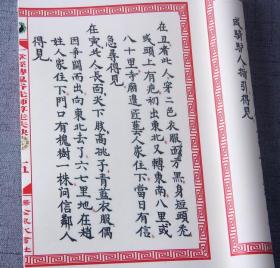 或騎馬人指引得見
在丑者此人穿二色衣服面方黑身短頭禿
或頭上有疤初出東北又轉東南八里或
八十里寺廟邊近姓人家住下當日有信
急尋得見
在寅此人長面尖下胲高挑子青藍衣服偶
因爭鬧而出向東北去了六七里地在趙
姓人家住下門口有槐樹一株问信鄰人
得見